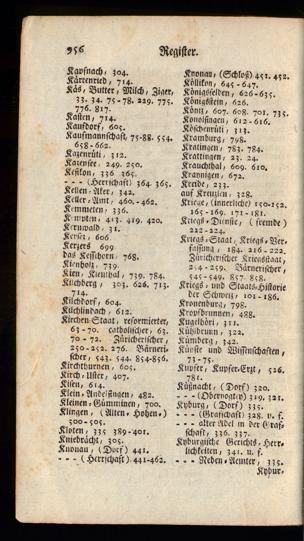 956 Register.
Kapfnach, 304.
Kärrenried, 714.
Käs, Butter, Milch, Ziger,
33. 34. 75-78. 229. 775.
776. 817.
Kasten, 714.
Kaufdorf, 605.
Kaufmannschaft, 75-88. 554.
658-662.
Kazenrüti, 312.
Kazensee, 249. 250.
Keßlon, 336. 365.
- - - (Herrschaft) 364. 365.
Kellen-Aker, 342.
Keller-Amt, 460.-462.
Kemmeten, 336.
Kempten, 413. 419. 420.
Kernwald, 31.
Kersez, 606.
Kerzers 699.
das Kesshorn, 768.
Kienholz, 739.
Kien, Kienthal, 739. 784.
Kilchberg, 303. 626. 713.
714.
Kilchdorf, 604.
Küchlindach, 612.
Kirchen-Staat, reformierter,
63-70. catholischer, 63.
70-72. Züricherischer,
250-252. 276. Bärneri-
scher, 543. 544. 854-856.
Kirchthurnen, 605.
Kirch-Uster, 407.
Kisen, 614.
Klein-Andelfingen, 482.
Kleinen-Gümminen, 700.
Klingen, (Alten-Hohen,)
500-505.
Kloten, 335. 389-401.
Kniebrächi, 305.
Knonau, (Dorf) 441.
- - - (Herrschaft) 441-462.
Knonau, (Schloß) 451. 452.
Köllikon, 645-647.
Königsfelden, 626-635.
Königstein, 626.
Köniz, 607. 608. 701. 735.
Konolfingen, 612-616.
Köschenrüti, 313.
Kramburg, 798.
Kratingen, 783. 784.
Krattingen, 23. 24.
Krauchthal, 609. 610.
Kraynigen, 672.
Kreide, 233.
auf Kreuzien, 328.
Kriege, (innerliche) 150-152.
165-169. 171-181.
Kriegs-Dienste, (fremde)
222-224.
Kriegs-Staat, Kriegs-Ver-
fassung, 184. 216-222.
Züricherischer Kriegsstaat,
254-259. Bärnerischer,
545-549. 857. 858.
Kriegs- und Staats-Historie
der Schweiz, 101-186.
Kronenburg, 798.
Kropfsbrunnen, 488.
Kugelhöri, 311.
Kühbrunn, 322.
Kümberg, 342.
Künste und Wissenschaften,
73-75.
Kupfer, Kupfer-Erzt, 526.
781.
Küßnacht, (Dorf) 320.
- - - (Obervogtey) 319. 321.
Kyburg, (Dorf) 335.
- - - (Grafschaft) 328. u. f.
- - - alter Adel in der Graf-
schaft, 336. 337.
Kyburgische Gerichts-Herr-
lichkeiten, 341. u. f.
- - - Neben-Aemter, 335.
Kybur-